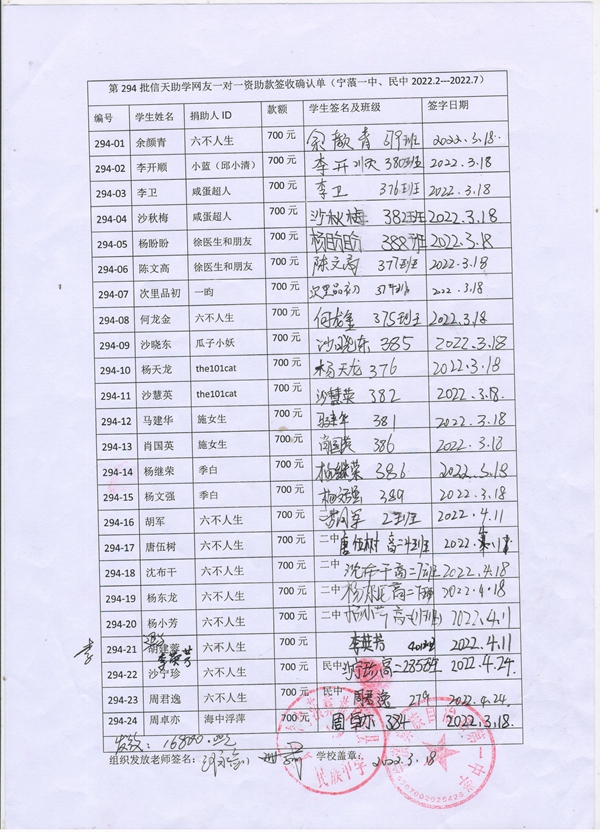 第 294 批信天助学网友一对一资助款签收确认单（宁蒗一中、民中 2022.2---2022.7）
编号 学生姓名 捐助人 ID 款额 学生签名及班级 签字日期
294-01 余颜青 六不人生 700 元 余颜青 379班 2022.3.18
294-02 李开顺 小蓝（邱小清） 700 元 李开顺 380班 2022.3.18
294-03 李卫 咸蛋超人 700 元 李卫 376班 2022.3.18
294-04 沙秋梅 咸蛋超人 700 元 沙秋梅 382班 2022.3.18
294-05 杨盼盼 徐医生和朋友 700 元 杨盼盼 388班 2022.3.18
294-06 陈文高 徐医生和朋友 700 元 陈文高 377班 2022.3.18
294-07 次里品初 一昀 700 元 次里品初 374班 2022.3.18
294-08 何龙金 六不人生 700 元 何龙金 375班 2022.3.18
294-09 沙晓东 瓜子小妖 700 元 沙晓东 385 2022.3.18
294-10 杨天龙 the101cat 700 元 杨天龙 376 2022.3.18
294-11 沙慧英 the101cat 700 元 沙慧英 382 2022.3.18
294-12 马建华 施女生 700 元 马建华 381 2022.3.18
294-13 肖国英 施女生 700 元 肖国英 386 2022.3.18
294-14 杨继荣 季白 700 元 杨继荣 386 2022.3.18
294-15 杨文强 季白 700 元 杨文强 389 2022.3.18
294-16 胡军 六不人生 700 元 二中 胡军 2022.4.11
294-17 唐伍树 六不人生 700 元 二中 唐伍树 高二 班 2022.4
294-18 沈布干 六不人生 700 元 二中 沈布干 高二 班 2022.4.18
294-19 杨东龙 六不人生 700 元 二中 杨东龙 高二 班 2022.4.18
294-20 杨小芳 六不人生 700 元 二中 杨小芳 高二 班 2022.4.11
294-21 胡建蓉 李英芳 六不人生 700 元 李英芳 401班 2022.4.11
294-22 沙宁珍 六不人生 700 元 民中 沙宁珍 高二285班 2022.4.24.
294-23 周君逸 六不人生 700 元 民中 周君逸 279 2022.4.24.
294-24 周卓亦 海中浮萍 700 元 周卓亦 384 2022.3.18.
发放：16800.元
组织发放老师签名： 学校盖章： 2022.3.18
民族中学
第一中学